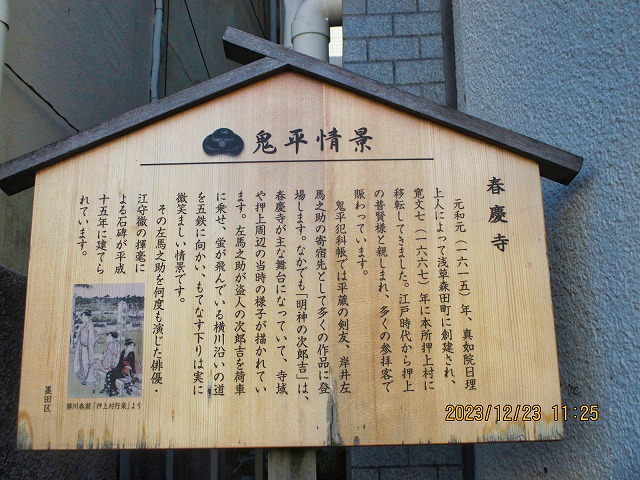 鬼平情景
春慶寺
元和元（一六一五）年、真如院日理
上人によって浅草森田町に創建され、
寛文七（一六六七）年に本所押上村に
移転してきました。江戸時代から押上
の普賢様と親しまれ、多くの参拝客で
賑わっています。
鬼平犯科帳では平蔵の剣友、岸井左
馬之助の寄宿先として多くの作品に登
場します。なかでも「明神の次郎吉」は、
春慶寺が主な舞台になっていて、寺域
や押上周辺の当時の様子が描かれてい
ます。左馬之助が盗人の次郎吉を荷車
に乗せ、蛍が飛んでいる横川沿いの道
を五鉄に向かい、もてなす下りは実に
微笑ましい情景です。
その左馬之助を何度も演じた俳優・
江守徹の揮毫に
よる石碑が平成
十五年に建てら
れています。
勝川春潮「押上村行楽」より
墨田区
2023/12/23 11:25